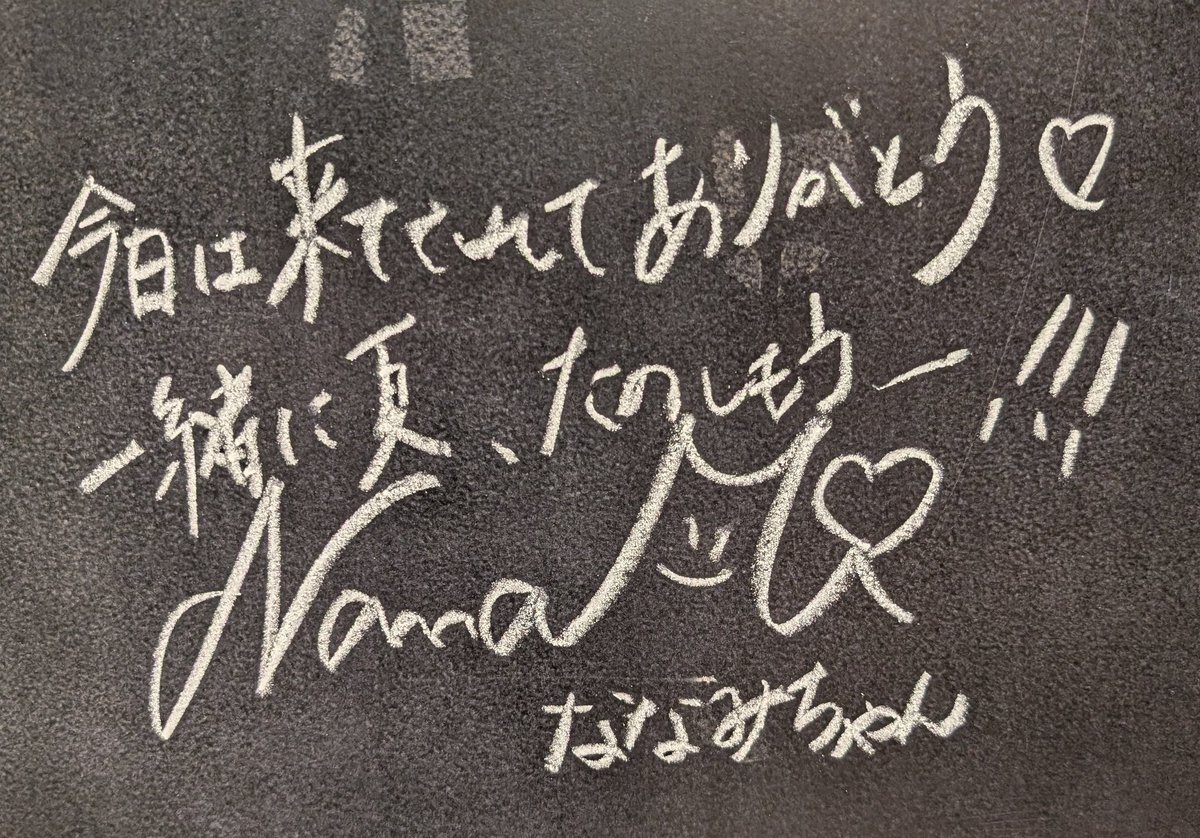 今日は来てくれてありがとう♡
一緒に夏、たのしもうー!!!
Nana
ななみちゃん